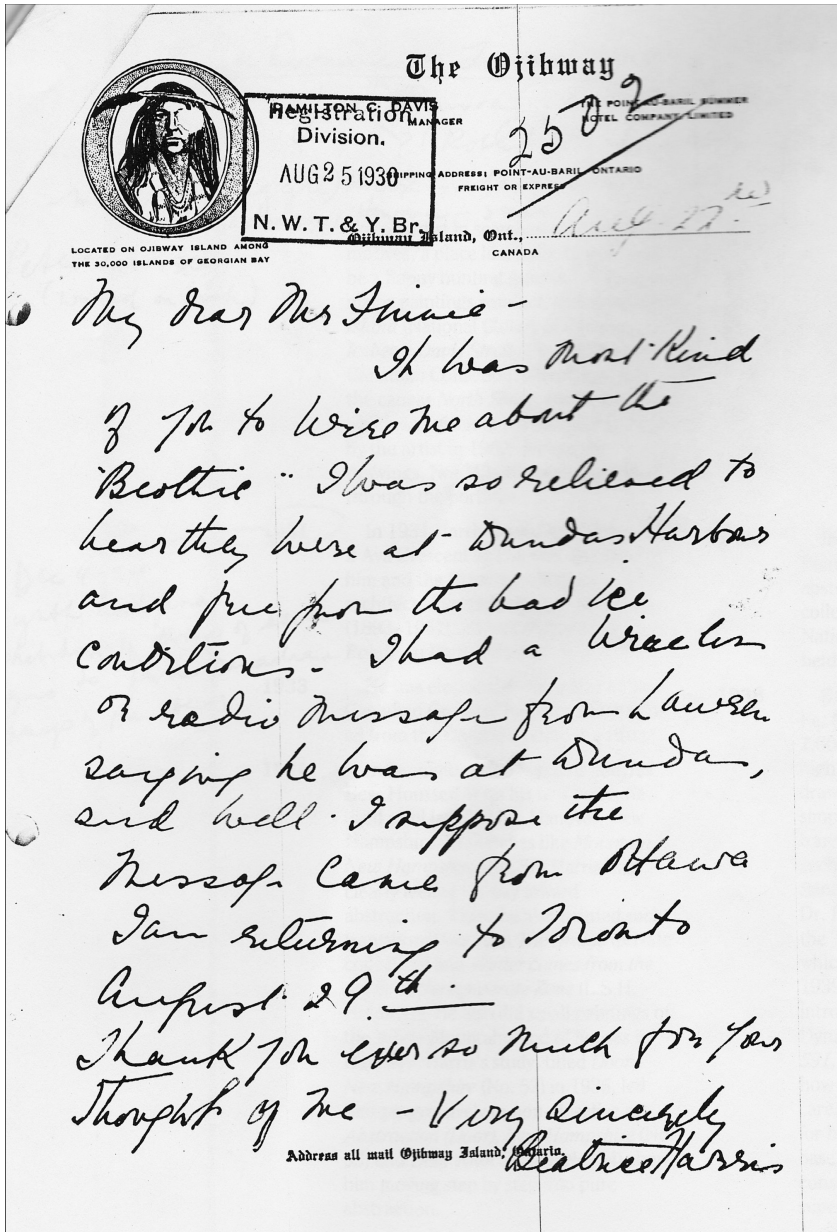 The Ojibway
HAMILTON C. DAVIS
MANAGER
THE POINT-AU-BARIL SUMMER
HOTEL COMPANY, LIMITED
Registration
Division.
AUG 25 1930
N. W. T. & Y. Br.
2502
SHIPPING ADDRESS: POINT-AU-BARIL ONTARIO
FREIGHT OR EXPRESS
Ojibway Island, Ont., Aug. 22nd
CANADA
LOCATED ON OJIBWAY ISLAND AMONG
THE 30,000 ISLANDS OF GEORGIAN BAY
My dear Mr Finnie -
It was most kind
of you to wire me about the
"Beothic" I was so relieved to
hear they were at Dundas Harbour
and free from the bad ice
conditions - I had a wireless
or radio message from Lawren
saying he was at Dundas,
and well. I suppose the
message came from Ottawa
I am returning to Toronto
August 29th.
Thank you ever so much for your
thought of me - Very sincerely
Beatrice Harris
Address all mail Ojibway Island, Ontario.